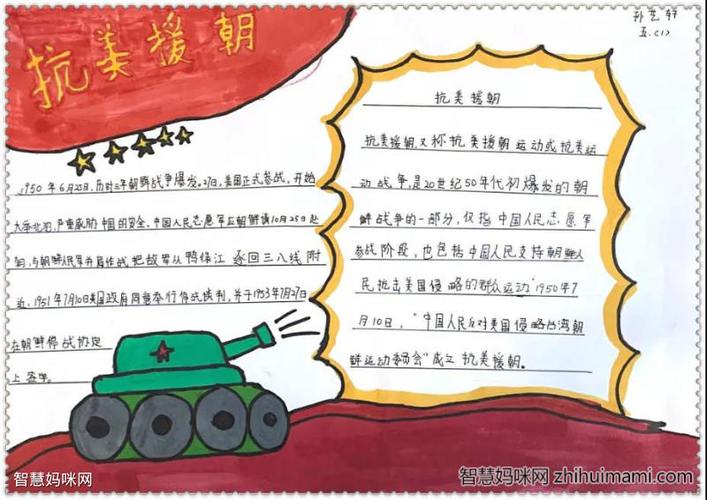 抗美援朝
孙艺轩
五.(1)
1950年6月25日,历时三年朝鲜战争爆发。27日,美国正式参战,开始
大举北犯,严重威胁中国的安全、中国人民志愿军应朝鲜请10月25日赴
朝,与朝鲜人民军并肩作战把敌军从鸭绿江 逐回三八线附
近、1951年7月10日美国政府同意举行停战谈判,并于1953年7月27日
在朝鲜停战协定
上签字。
抗美援朝
抗美援朝,又称抗美援朝运动或抗美运
动战争,是20世纪50年代初爆发的朝
鲜战争的一部分,仅指中国人民志愿军
参战阶段,也包括中国人民支持朝鲜人
民抗击美国侵略的群众运动"1950年7
月10日,"中国人民反对美国侵略台湾朝
鲜运动委员会"成立 抗美援朝。
智慧妈咪网
智慧妈咪网 zhihuimami.com